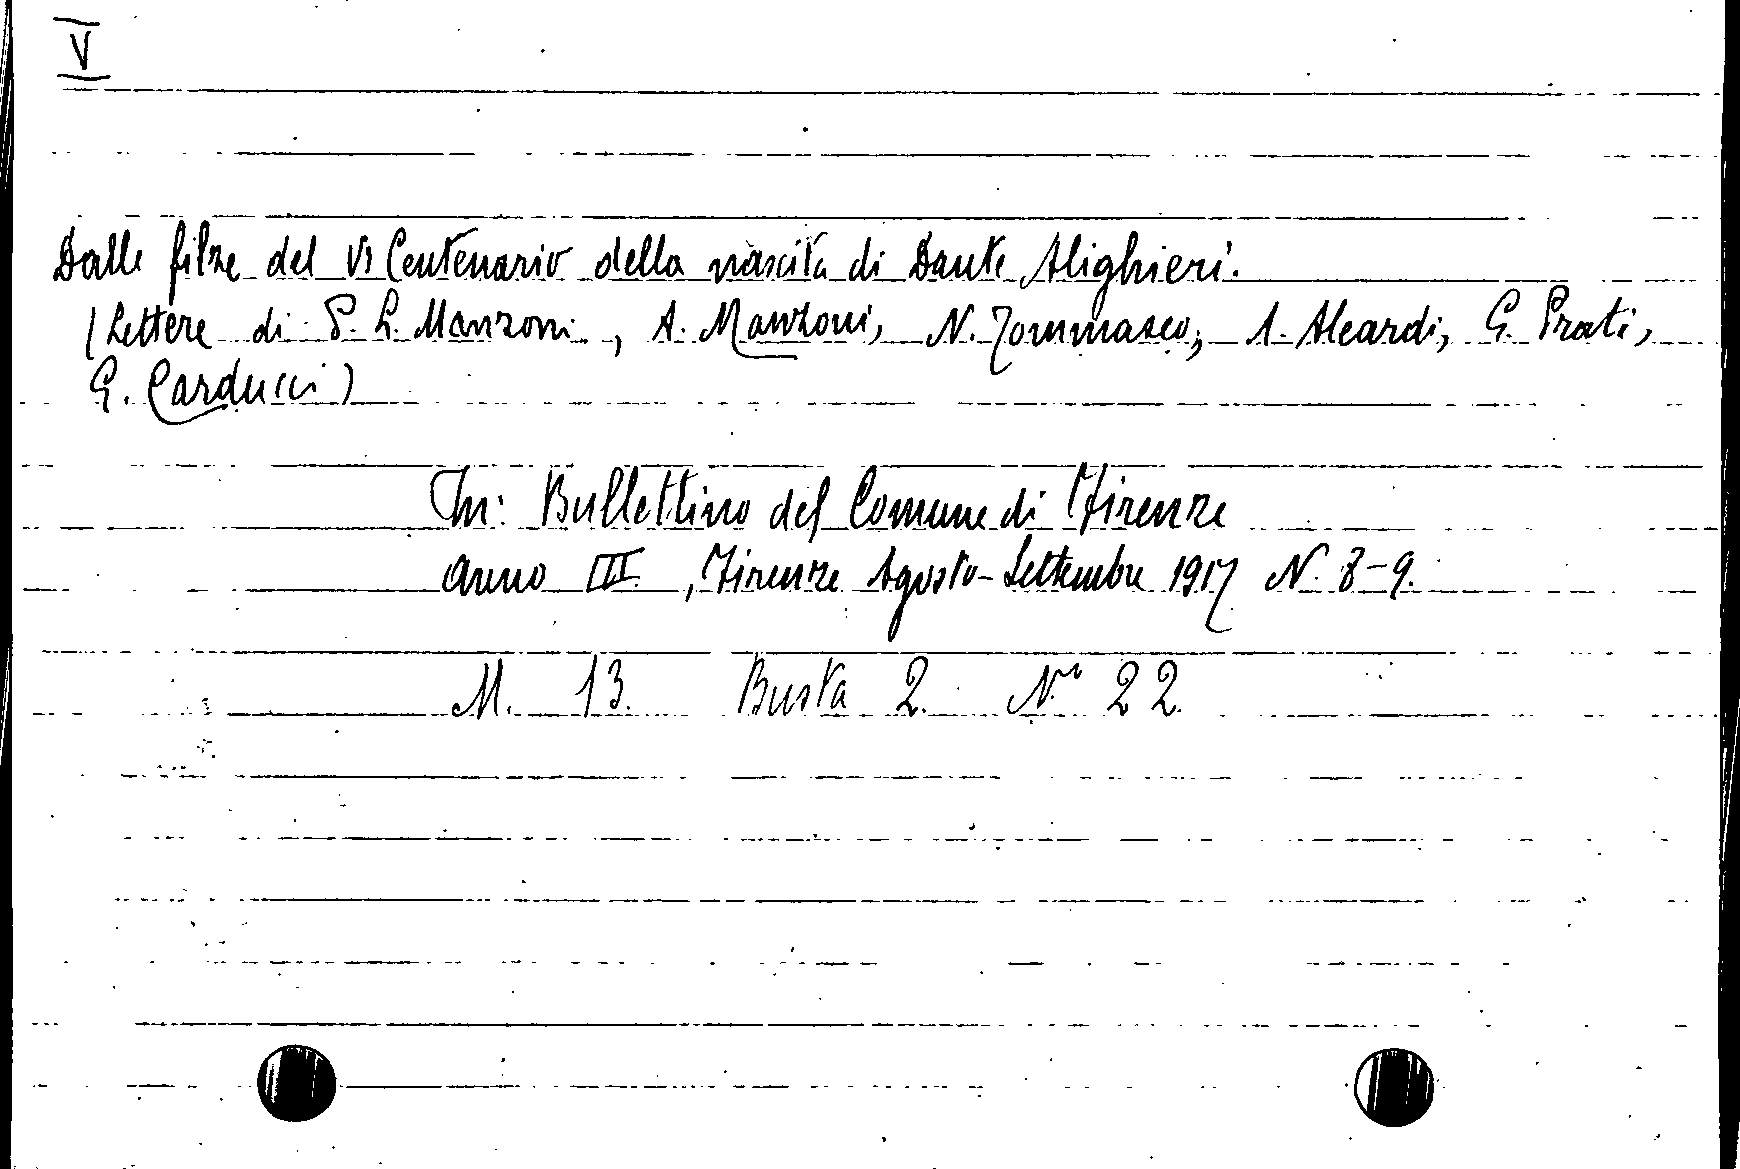 V
Dalle filze del VI Centenario della nascita di Dante Alighieri.
(Lettere di P. L. Manzoni, A. Manzoni, N. Tommaseo, A. Aleardi, G. Prati,
G. Carducci)
In: Bullettino del Comune di Firenze
anno III, Firenze Agosto-Settembre 1917 N. 8-9.
M. 13. Busta 2. N° 22.